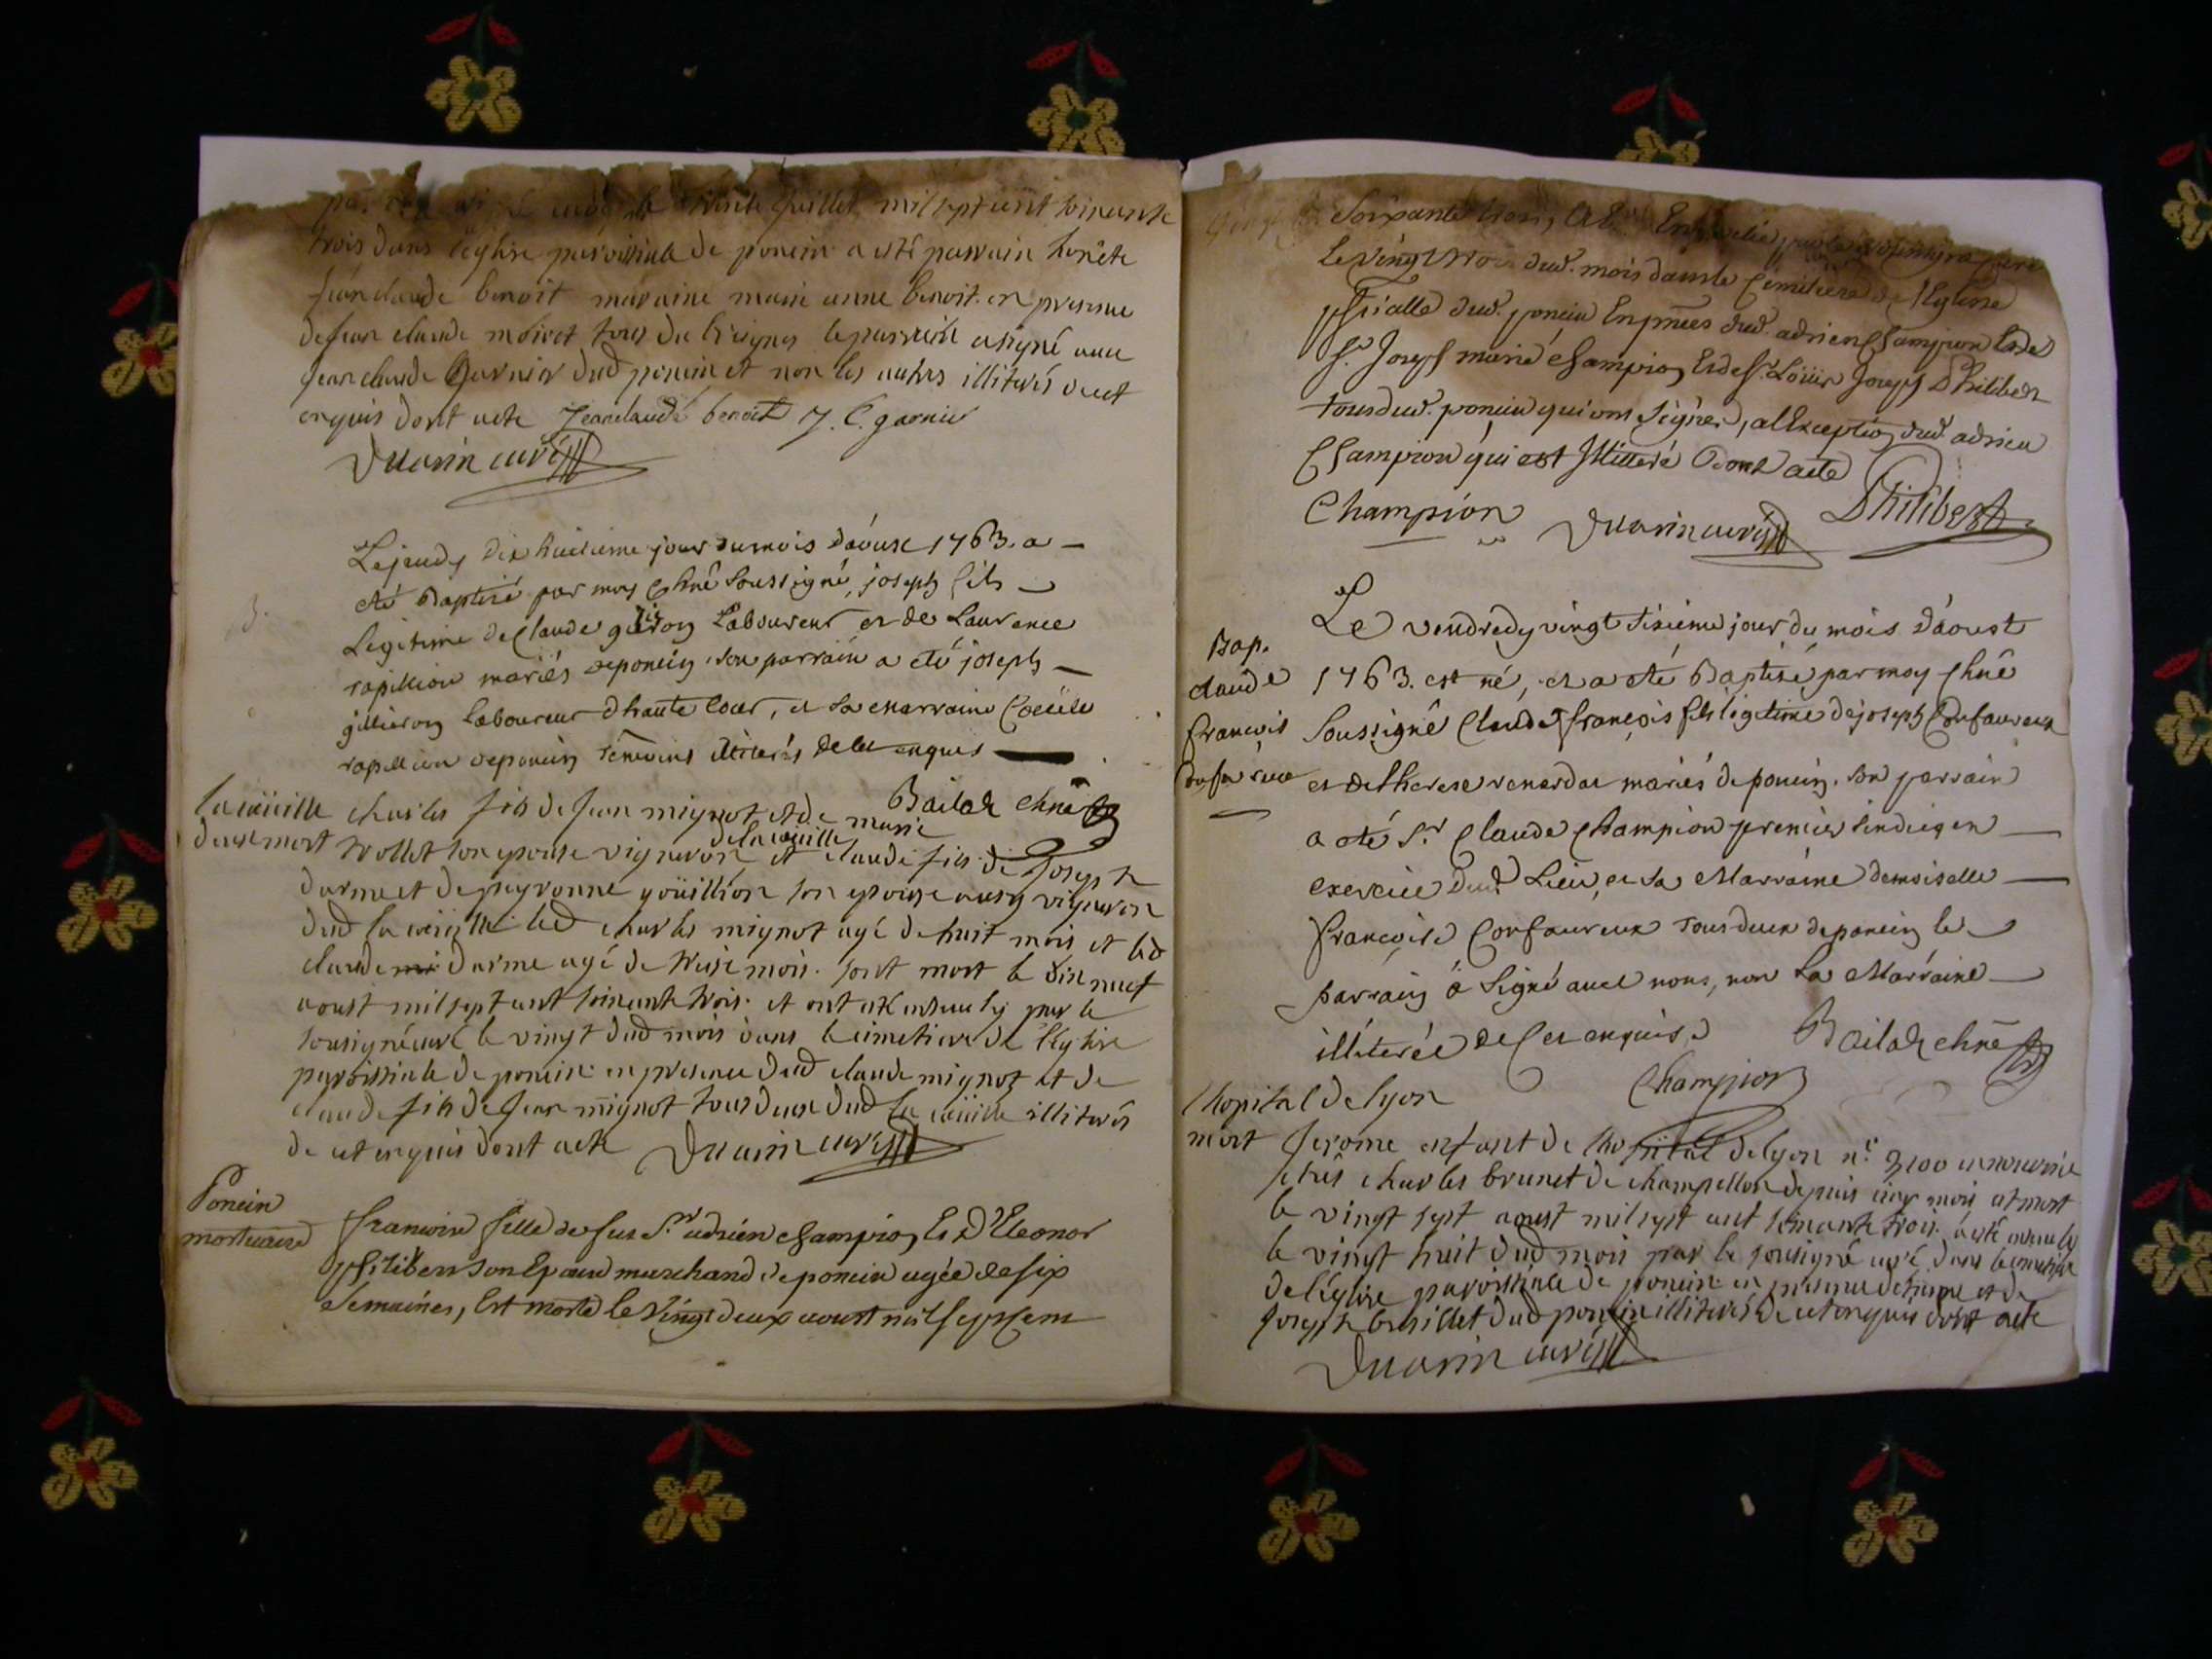 le trente juillet mil sept cent soixante
trois dans l'eglise paroissiale de poncin a eté parrain honête
jean claude benoit maraine marie anne benoit en presence
de jean claude moiret tous du le parrain a signé avec
jean claude garnier dud poncin et non les autres illiterés de cet
enquis dont acte Jean claude benoit J. C. garnier
Duarin curé
Le jeudy dix huitieme jour du mois d'aoust 1763. a
eté Baptisé par moy Chne soussigné, joseph fils
Legitime de Claude Laboureur et de Laurence
rapillion mariés de poncin, son parrain a eté joseph
gillieron Laboureur d'haute Cour, et sa marraine Cecile
rapillion de poncin temoins illiterés de ce enquis
Bailat chne
la cüeille
deux mort
charles fils de jean mignot et de marie
trollet son epouse vigneron de la cueille et claude fils de joseph
darme et de peyronne goüillion son epouse aussy vigneron
dud la cüeille led charles mignot agé de huit mois et led
claude mi darme agé de treize mois. sont mort le dix neuf
aoust mil sept cent soixante trois. et ont eté ensevely par le
sousigné curé le vingt dud mois dans le cimetiere de l'église
paroissiale de poncin en presence dud claude mignot et de
claude fils de jean mignot tous deux dud la cüeille illiterés
de cet enquis dont acte Duarin curé
Poncin
mortuaire
francoise fille de feu Sr adrien champion Et D'Eleonor
philibert son Epouse marchand de poncin agée de six
Semaines, Est morte le vingt deux aoust mil sept cent
Soixante trois, et a Eté
le vingt trois dud. mois dans le cimetiere de l'Eglise
pssialle dud. poncin En pnces dud. adrien champion Et de
Sr. Joseph marie champion Et de Sr. Loüis Joseph Philibert
tous dud. poncin qui ont signé, a l'Exception dud. adrien
Champion qui est Illiteré Dont acte
Champion Duarin curé Philibert
Bap.
claude
francois
Confavreux
Le vendredy vingt sixieme jour du mois d'aoust
1763. est né, et a eté Baptisé par moy chne
soussigné Claude françois fils légitime de joseph Confavreux
et de therese renardat mariés de poncin. son parrain
a eté Sr. Claude Champion premier sindic en
exercice dud. Lieu, et sa Marraine demoiselle
françoise Confavreux tous deux de poncin le
parrain à signé avec nous, non la Marraine
illiterée de Ce enquise Bailat chne
Champion
l'hopital de lyon
mort
jerome enfant de l'hopital de lyon n.e 3100 en nourrice
chés charles brunet de champellon depuis cinq mois et mort
le vingt sept aoust mil sept cent soixante trois. a eté ensevely
le vingt huit dud mois par le sousigné curé dans le cimetiere
de l'église paroissiale de poncin en presence de et de
joseph dud poncin illiterés de cet enquis dont acte
Duarin curé